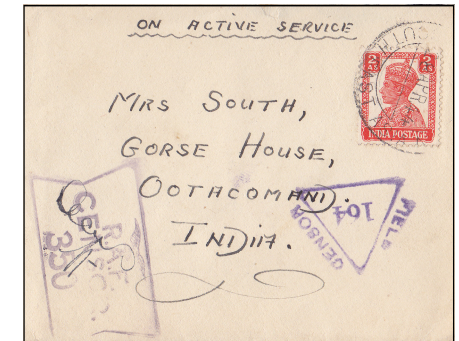 ON ACTIVE SERVICE
2 AS 2 AS
INDIA POSTAGE
MRS SOUTH,
GORSE HOUSE,
OOTACOMAND.
INDIA.
FIELD
CENSOR
164
350